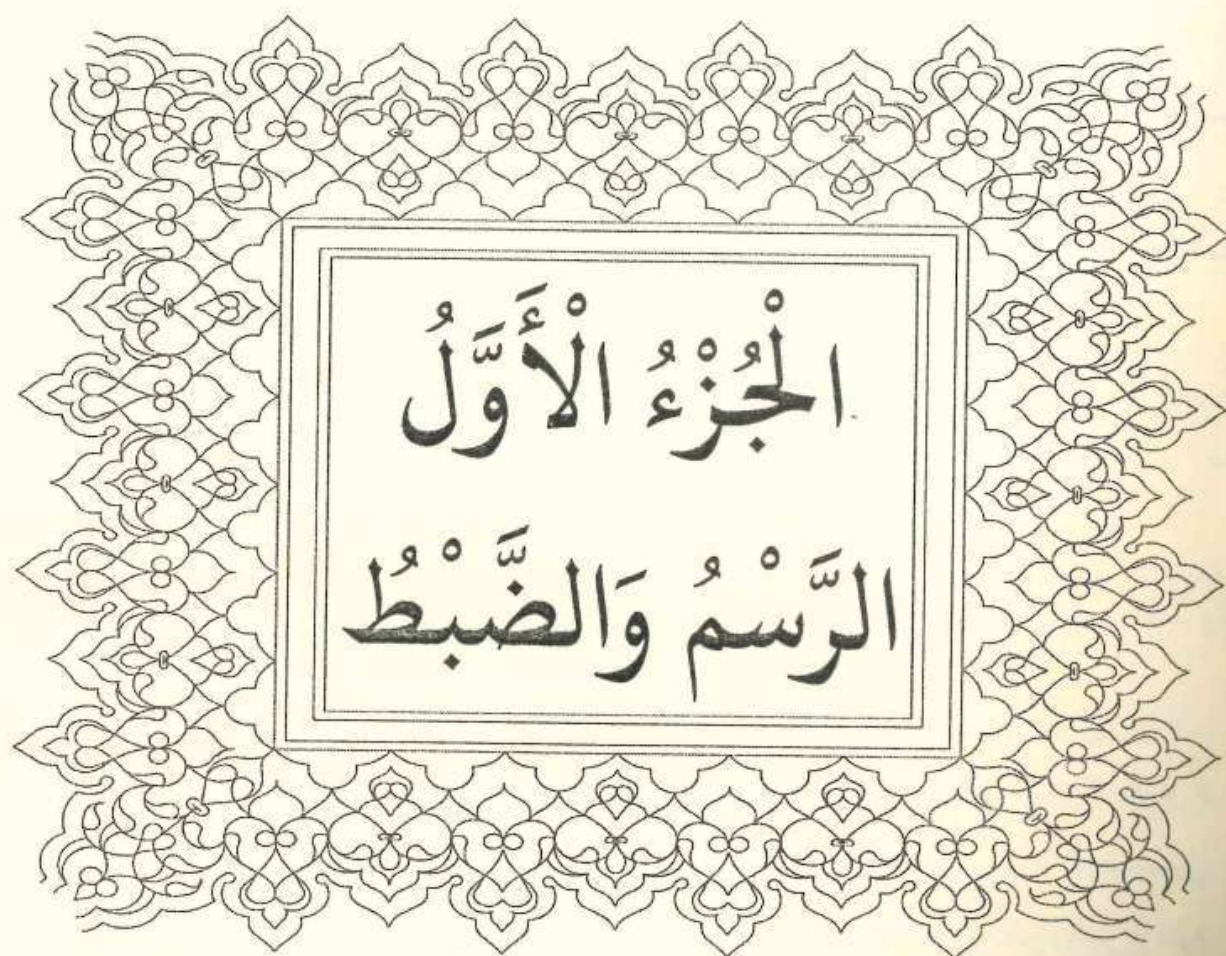 الْجُزْءُ الْأَوَّلُ
الرَّسْمُ وَالضَّبْطُ